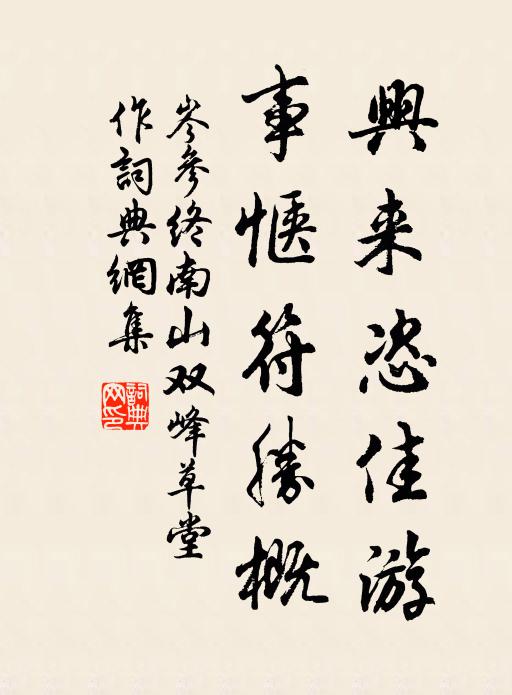 興来恣佳游
事愜符勝概
岑參終南山双峰草堂
作詞典網集
詞典网印